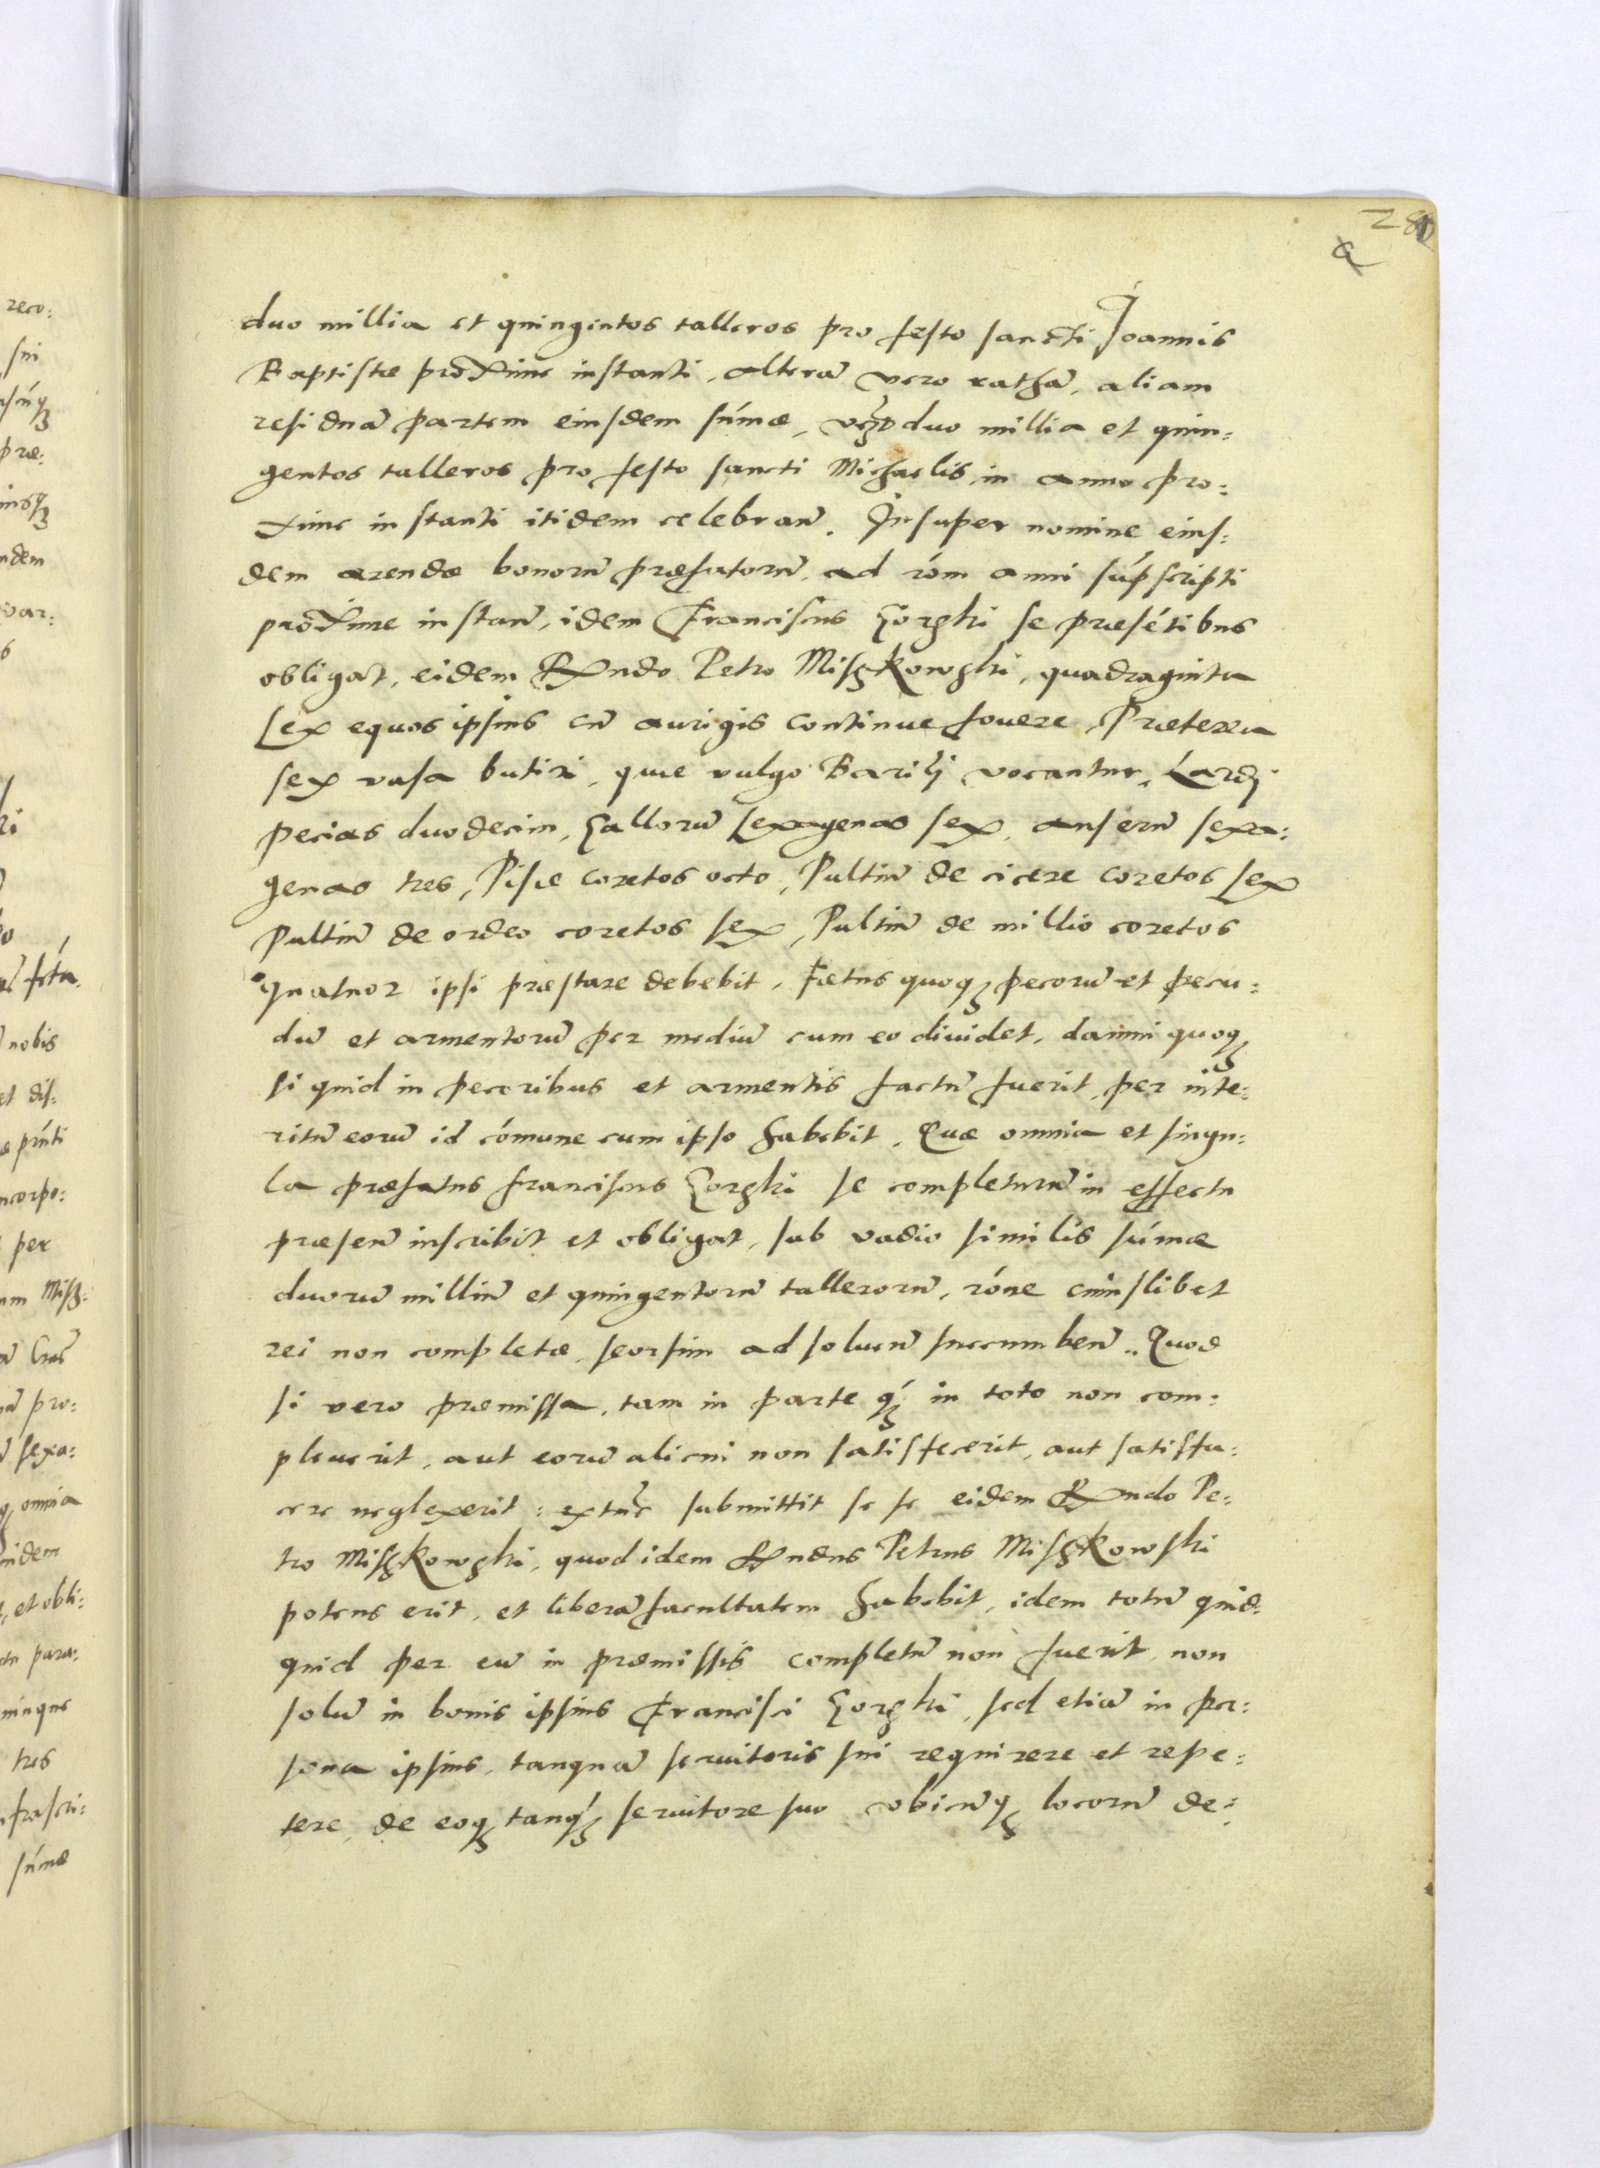 duo millia et quingintos talleros pro festo sancti Joannis
Baptistæ proxime instanti, alterā vero rathā, aliam
residuā partem eiusdem sum̃æ, duo millia et quin:
gentos talleros pro festo sancti Michaelis, in anno pro:
xime instanti itidem celebrañ. Insuper nomine eius:
dem arendæ bonorū præfatorū, ad rõm anni supscripti
proxime instañ, idem Franciscus Gorski se præsētibus
obligat, eidem Rndo Petro Miszkowski, quadraginta
sex equos ipsius cū aurigis continue fovere, Præterea
sex vasa butiri, quæ vulgo Barili vocantur, Lardi
pecias duodecim, Gallorū sexagenas sex, anserū sexa:
genas tres, Pisæ coretos octo, Pultiū de cicere coretos sex
Pultiū de ordeo coretos sex, Pultiū de millio coretos
quatuor ipsi præstare debebit, Fœtus quoq; pecorū et pecu:
dū et armentorū per mediū cum eo dividet, damni quoq;
si quid in pecoribus et armentis factū fuerit, per inte:
ritū eorū id com̃une cum ipso habebit. Quæ omnia et singu:
la præfatus franciscus Gorski se completurū in effectu
præseñ inscribit et obligat, sub vadio similis sum̃æ
duorū milliū et quingentorū tallerorū, rõne cuiuslibet
rei non completæ, seorsim ad solueñ succumbeñ. Quod
si vero præmissa, tam in parte q̃ in toto non com:
pleverit, aut eorū alicui non satisfecerit, aut satisfa:
cere neglexerit: extūc submittit se se eidem Rndo Pe:
tro Miszkowski, quod idem Rndus Petrus Miszkowski
potens erit, et liberā facultatem habebit, idem totū quid:
quid per eū in præmissis completū non fuerit, non
solū in bonis ipsius Francisci Gorski, sed etiā in per:
sona ipsius, tanquā servitoris sui requirere et repe:
tere, de eoq; tanq̃ servitore suo ubicūq; locorū de: